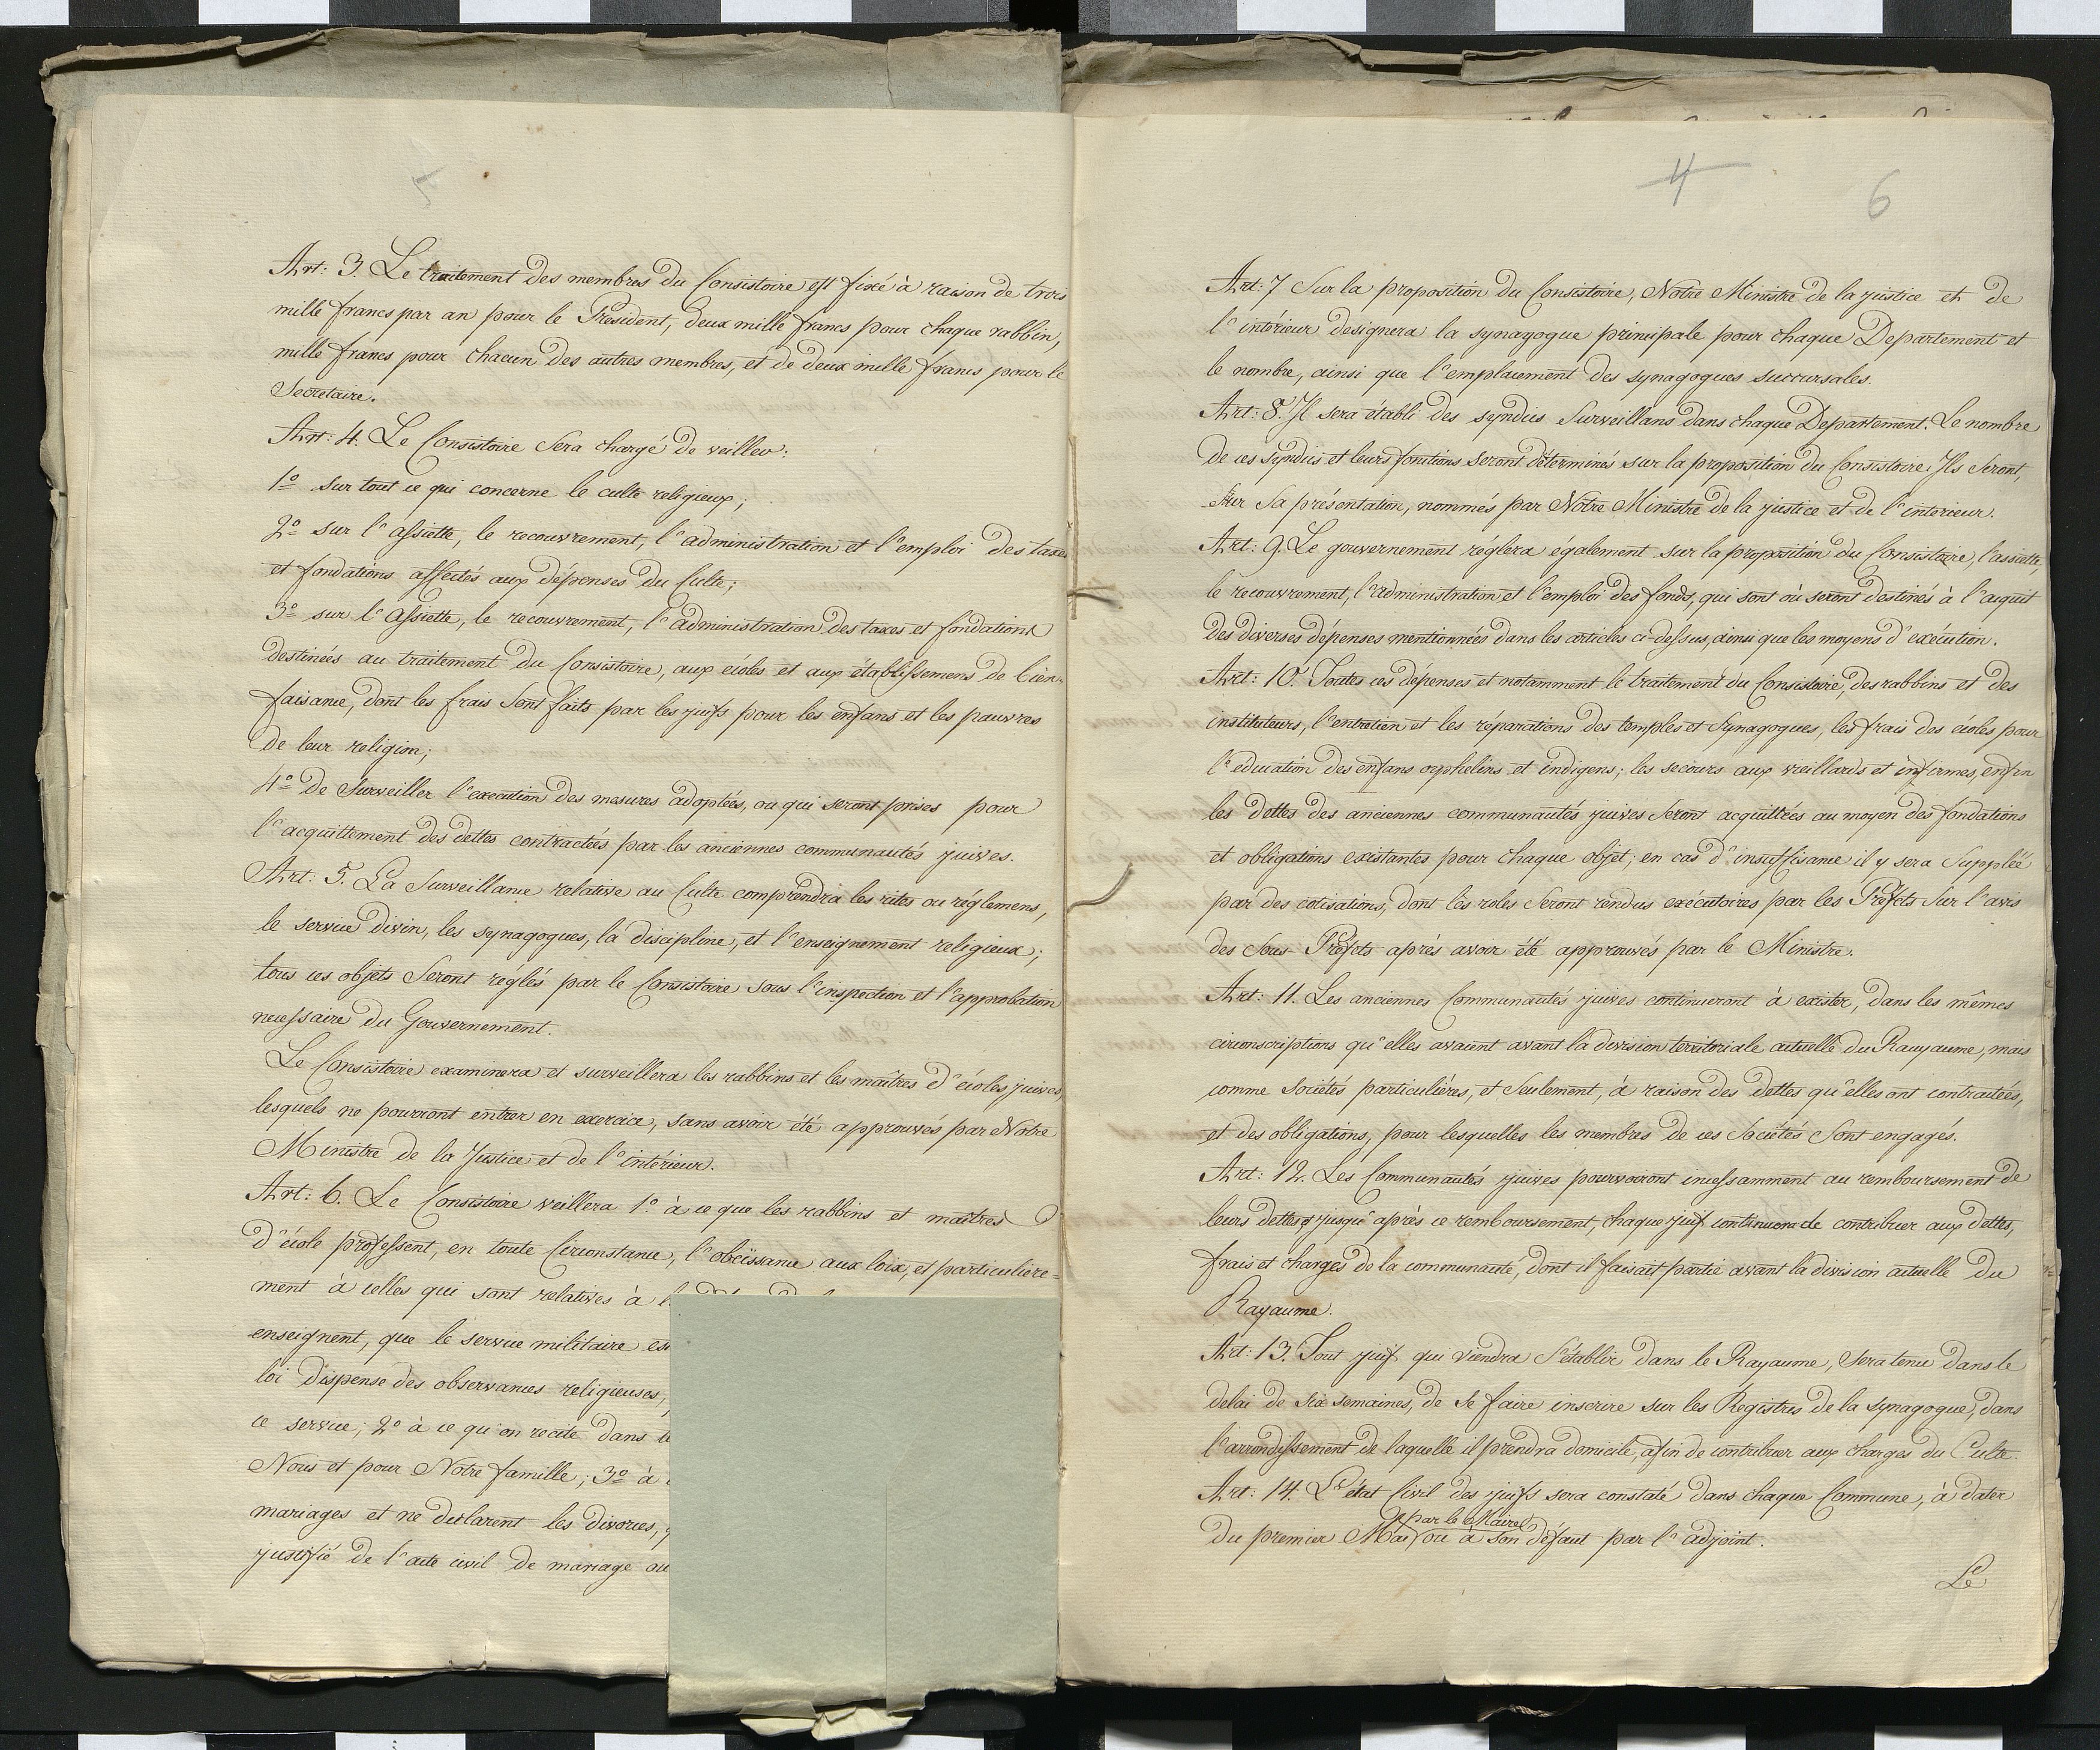 5
Art: 3. Le traitement des membres du Consistoire est fixé à raison de trois
mille francs par an pour le President, deux mille francs pour chaque rabbin,
mille francs pour chacun des autres membres, et de deux mille francs pour le
Secretaire.
Art: 4. Le Consistoire sera chargé de veiller:
1º sur tout ce qui concerne le culte religieux;
2º sur l'assiette, le recouvrement, l'administration et l'emploi des taxes
et fondations affectés aux dépenses du Culte;
3º sur l'assiette, le recouvrement, l'administration des taxes et fondations
destinées au traitement du Consistoire, aux écoles et aux établissemens de bien-
faisance, dont les frais sont faits par les juifs pour les enfans et les pauvres
de leur religion;
4º de surveiller l'execution des mesures adoptées, ou qui seront prises pour
l'acquittement des dettes contractées par les anciennes communautés juives.
Art: 5. La surveillance relative au Culte comprendra les rites ou réglemens,
le service divin, les synagogues, la discipline, et l'enseignement religieux;
tous ces objets seront réglés par le Consistoire sous l'inspection et l'approbation
necessaire du Gouvernement.
Le Consistoire examinera et surveillera les rabbins et les maîtres d'écoles juives,
lesquels ne pourront entrer en exercice, sans avoir été approuvés par Notre
Ministre de la Justice et de l'intérieur.
Art: 6. Le Consistoire veillera 1º à ce que les rabbins et maîtres
d'école professent, en toute circonstance, l'obéissance aux loix, et particuliere=
ment à celles qui sont relatives à
enseignent, que le service militaire
loi dispense des observances religieuses,
ce service; 2º à ce qu'on recite dans
Nous et pour Notre famille; 3º à
mariages et ne declarent les divorces,
justifié de l'acte civil de mariage ou
4 6
Art: 7 Sur la proposition du Consistoire, Notre Ministre de la justice et de
l'intérieur designera la synagogue principale pour chaque Departement et
le nombre, ainsi que l'emplacement des synagogues succursales.
Art: 8. Il sera établi des syndics surveillans dans chaque Departement. Le nombre
de ces syndics et leurs fonctions seront déterminés sur la proposition du Consistoire. Ils seront,
sur sa présentation, nommés par Notre Ministre de la justice et de l'interieur.
Art: 9. Le gouvernement réglera également sur la proposition du Consistoire, l'assiette,
le recouvrement, l'administration et l'emploi des fonds, qui sont où seront destinés à l'acquit
des diverses dépenses mentionnées dans les articles ci-dessus, ainsi que les moyens d'exécution.
Art: 10. Toutes ces dépenses et notamment le traitement du Consistoire, des rabbins et des
instituteurs, l'entretien et les réparations des temples et synagogues, les frais des écoles pour
l'education des enfans orphelins et indigens; les secours aux vieillards et infirmes, enfin
les dettes des anciennes communautés juives seront acquittées au moyen des fondations
et obligations existantes pour chaque objet; en cas d'insuffisance il y sera suppléé
par des cotisations, dont les roles seront rendus exécutoires par les Préfets sur l'avis
des Sous-Préfets après avoir été approuvés par le Ministre.
Art: 11. Les anciennes Communautés juives continueront à exister, dans les mêmes
circonscriptions qu'elles avaient avant la division territoriale actuelle du Rauyaume, mais
comme sociétés particulières, et seulement, à raison des dettes qu'elles ont contractées,
et des obligations, pour lesquelles les membres de ces sociétés sont engagés.
Art: 12. Les Communautés juives pourvoiront incessamment au remboursement de
leurs dettes et jusqu'après ce remboursement, chaque juif continuera de contribuer aux dettes,
frais et charges de la communauté, dont il faisait partie avant la division actuelle du
Rayaume.
Art: 13. Tout juif qui viendra s'établir dans le Rayaume, sera tenu dans le
delai de six semaines, de se faire inscrire sur les Registres de la synagogue, dans
l'arrondissement de laquelle il prendra domicile, afin de contribuer aux charges du Culte.
Art: 14. L'état Civil des juifs sera constaté dans chaque Commune, à dater
par le Maire
du premier Mai, ou à son défaut par l'adjoint.
Le